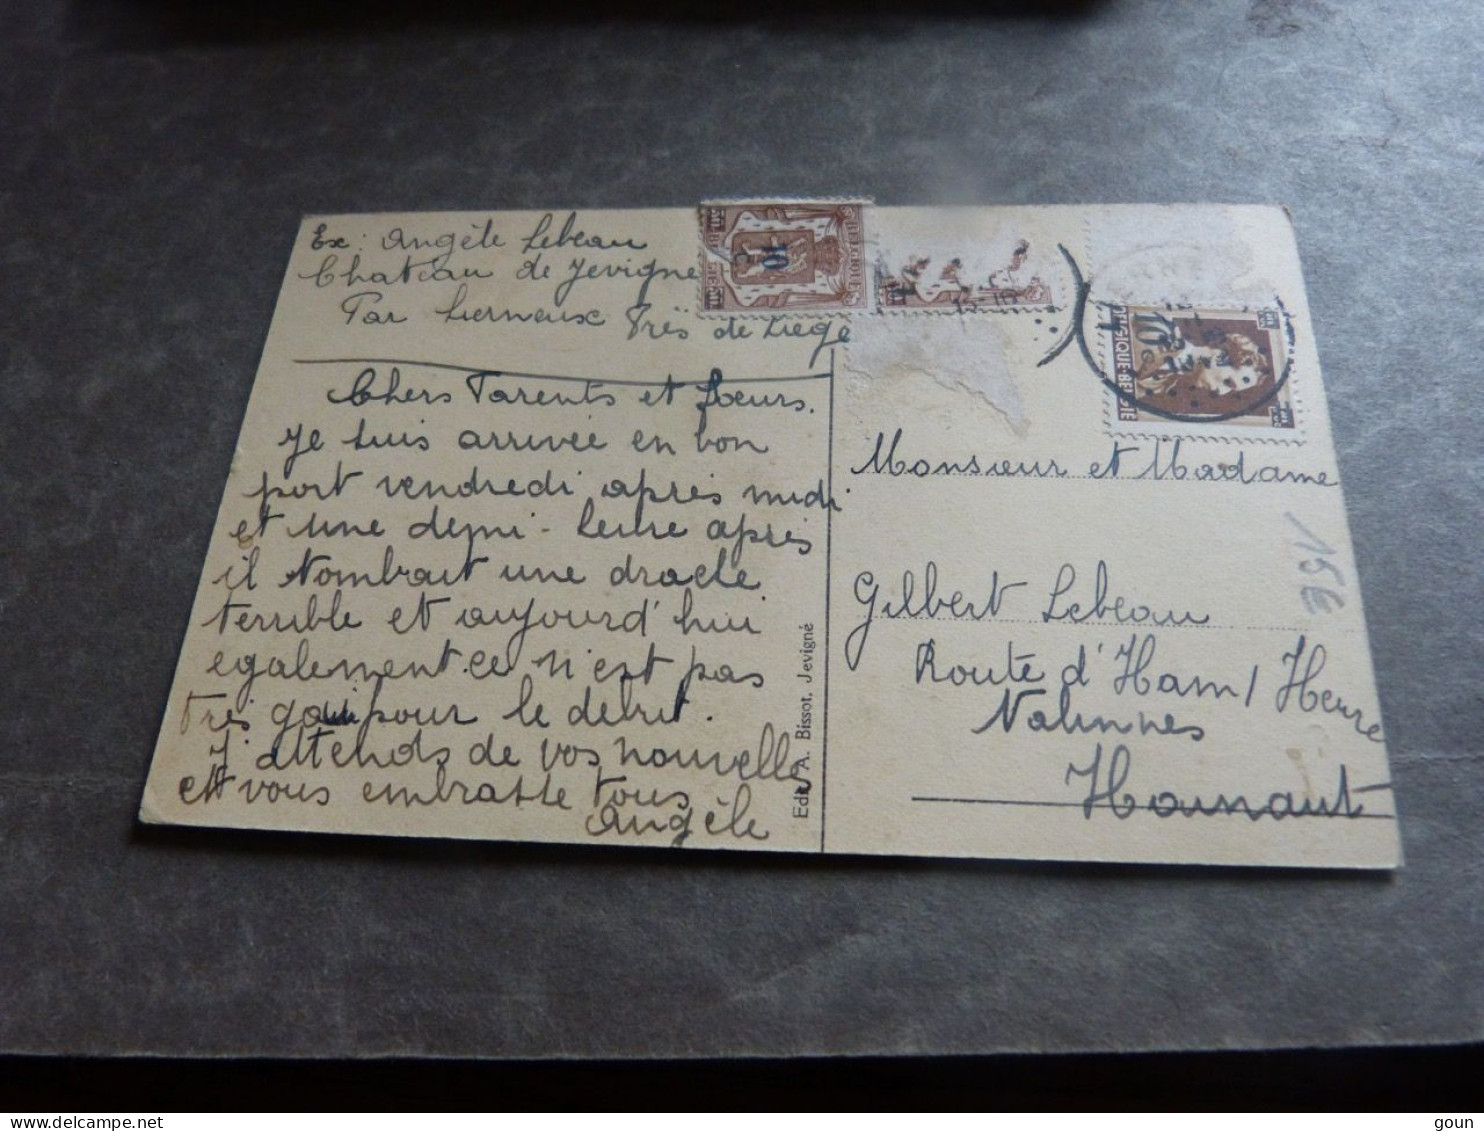 Ex: Angèle Lebeau
Chateau de Jevigné
Par Lierneux Très de Liège
Chers Parents et Soeurs.
Je suis arrivée en bon
port vendredi après midi
et une demi-heure après
il tombait une dracle
terrible et aujourd'hui
egalement. ce n'est pas
très gai pour le début.
J'attends de vos nouvelles
et vous embrasse tous
Angèle
Edit. A. Bissot. Jevigné
10
BELGIQUE-BELGIE
10 c
Monsieur et Madame
Gilbert Lebeau
Route d'Ham / Heure
Nalinnes
Hainaut
15€
goun